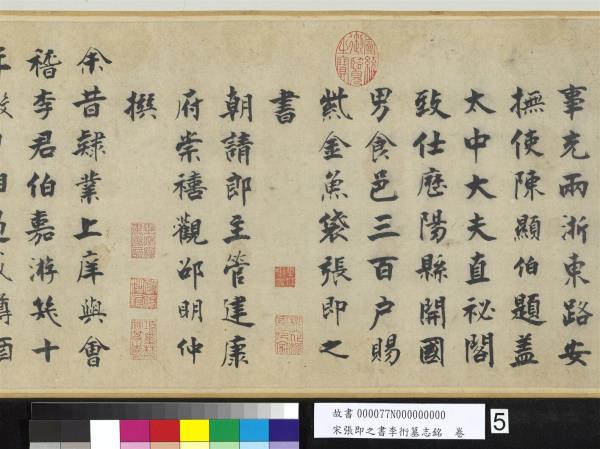 事充兩浙東路安
撫使陳顯伯題蓋
太中大夫直祕閣
致仕歷陽縣開國
男食邑三百户賜
紫金魚袋張即之
書
朝請郎主管建康
府崇禧觀邵明仲
撰
余昔隸業上庠與會
稽李君伯嘉游幾十
故書 000077N000000000
宋張即之書李衎墓志銘 卷
5